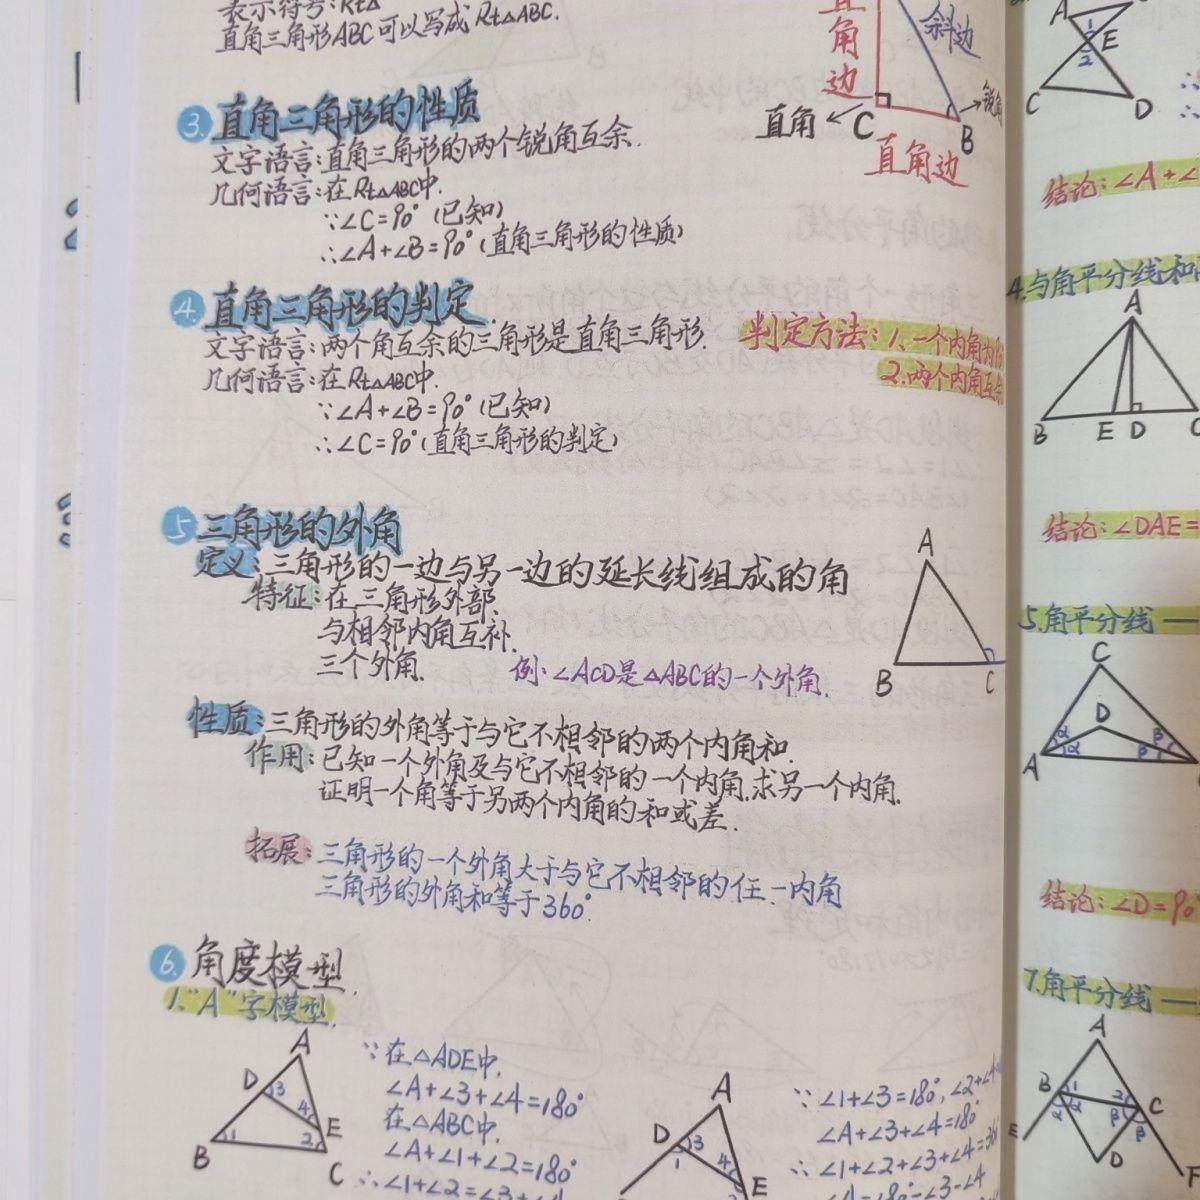 表示符号:Rt△
直角三角形ABC可以写成 Rt△ABC.
直角边
斜边
直角 ← C
B
直角边
3. 直角三角形的性质
文字语言:直角三角形的两个锐角互余.
几何语言:在Rt△ABC中.
∵∠C=90°(已知)
∴∠A+∠B=90°(直角三角形的性质)
4. 直角三角形的判定.
文字语言:两个角互余的三角形是直角三角形.
几何语言:在Rt△ABC中.
∵∠A+∠B=90°(已知)
∴∠C=90°(直角三角形的判定)
判定方法:1.一个内角为
2.两个内角互余
5 三角形的外角
定义:三角形的一边与另一边的延长线组成的角
特征:在三角形外部.
与相邻内角互补.
三个外角.
例:∠ACD是△ABC的一个外角.
A
B
C
性质:三角形的外角等于与它不相邻的两个内角和.
作用:已知一个外角及与它不相邻的一个内角.求另一个内角.
证明一个角等于另两个内角的和或差.
拓展:三角形的一个外角大于与它不相邻的任一内角
三角形的外角和等于360°.
6. 角度模型.
1."A"字模型.
A
D 3
4 E
B 1 2 C
∵在△ADE中.
∠A+∠3+∠4=180°
在△ABC中.
∠A+∠1+∠2=180°
∴∠1+∠2=∠3+∠4
A
D 3
1 4
E
∵∠1+∠3=180°,∠2+∠4
∠A+∠3+∠4=180°
∴∠1+∠2+∠3+∠4=360
∠A=180°-∠3-∠4
A
1 E
2
C D
结论:∠A+∠
4.与角平分线和
A
B E D C
结论:∠DAE=
5.角平分线—
C
D
α β
A α β
结论:∠D=90°
7.角平分线—
A
B 1 2 C
α α β β
E D F